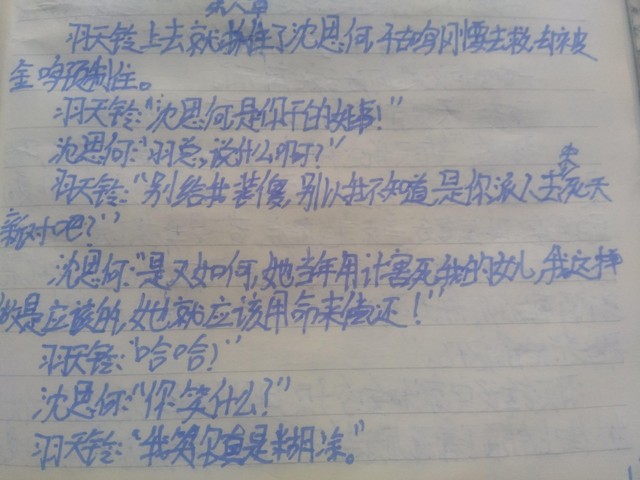 羽天铃上去就揪住了沈思何,千古鸣刚要去救,却被
金鸣预制住。
羽天铃:“沈思何是你干的好事!”
沈思何:“羽总,说什么呀?”
羽天铃:“别给我装傻,别以我不知道,是你派人去天
新对吧?”
沈思何:“是又如何,她当年用计害死我的女儿,我这样
做是应该的,她就应该用命来偿还!”
羽天铃:“哈哈!”
沈思何:“你笑什么?”
羽天铃:“我笑你真是糊涂。”